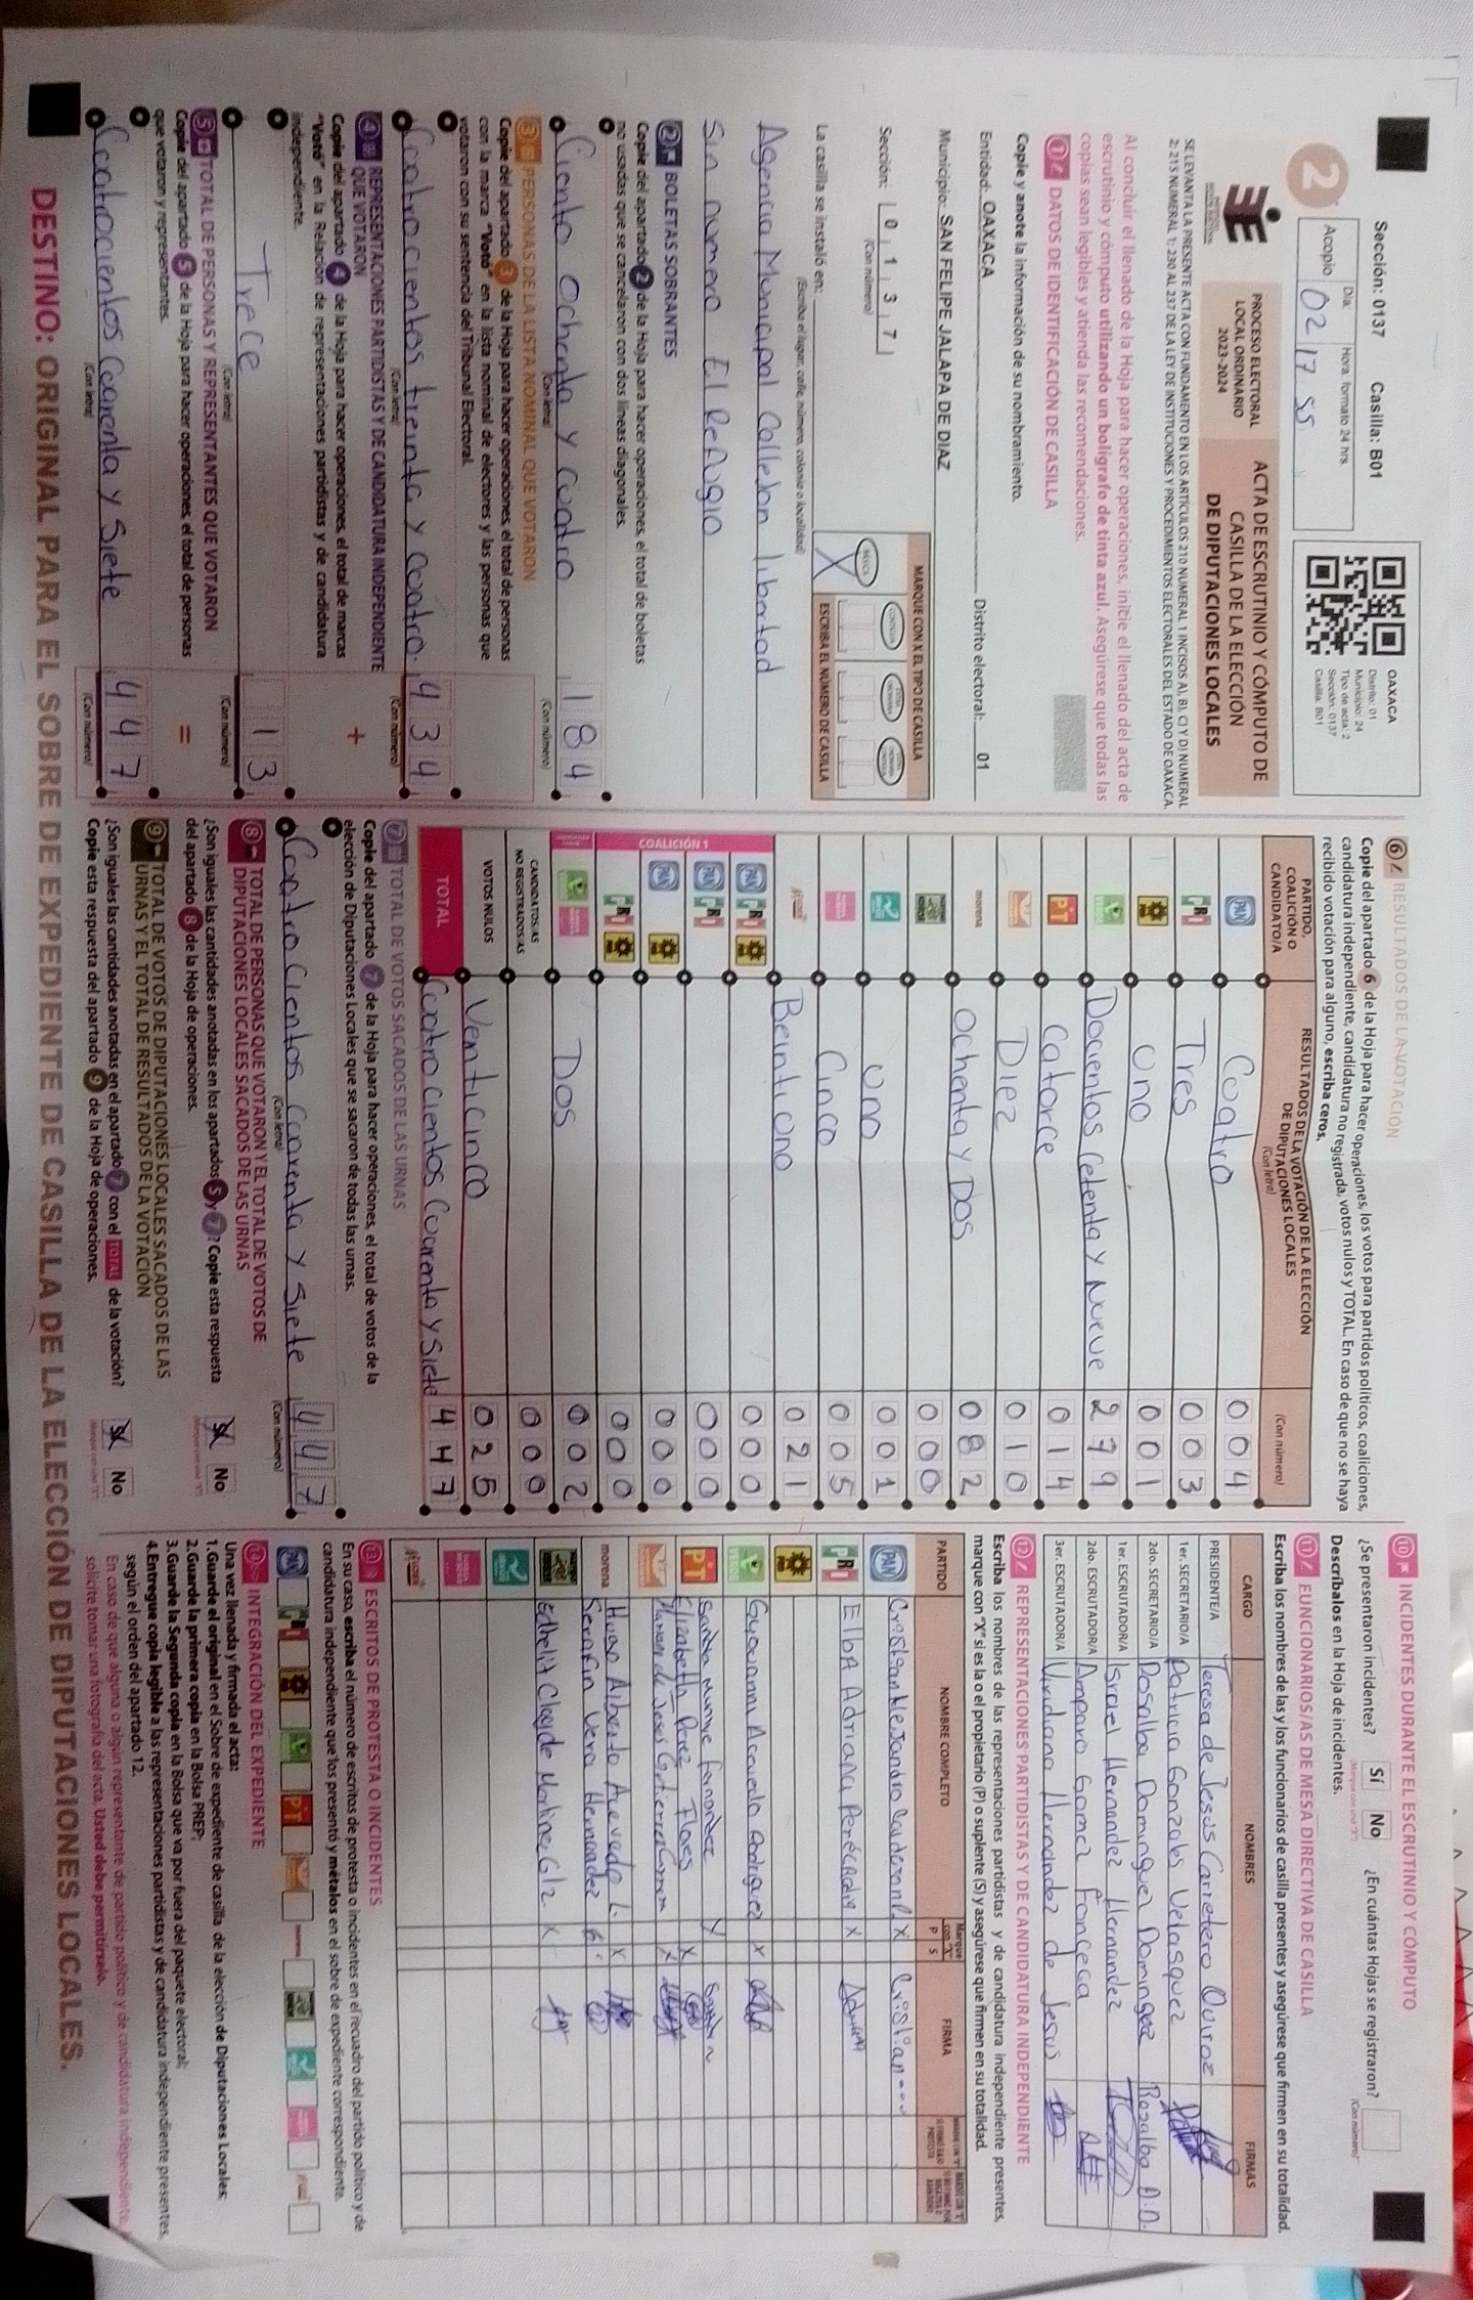 Sección: 0137 Casilla: B01
2
Día: Hora, formato 24 hrs.
Acopio 02 17 55
OAXACA
Distrito: 01
Municipio: 24
Tipo de acta: 2
Sección: 0137
Casilla: B01
PROCESO ELECTORAL
LOCAL ORDINARIO
2023-2024
ACTA DE ESCRUTINIO Y CÓMPUTO DE
CASILLA DE LA ELECCIÓN
DE DIPUTACIONES LOCALES
SE LEVANTA LA PRESENTE ACTA CON FUNDAMENTO EN LOS ARTÍCULOS 210 NUMERAL 1 INCISOS A), B), C) Y D) NUMERAL
2; 215 NUMERAL 1; 230 AL 237 DE LA LEY DE INSTITUCIONES Y PROCEDIMIENTOS ELECTORALES DEL ESTADO DE OAXACA.
Al concluir el llenado de la Hoja para hacer operaciones, inicie el llenado del acta de
escrutinio y cómputo utilizando un bolígrafo de tinta azul. Asegúrese que todas las
copias sean legibles y atienda las recomendaciones.
1 DATOS DE IDENTIFICACIÓN DE CASILLA
Copie y anote la información de su nombramiento.
Entidad: OAXACA Distrito electoral: 01
Municipio: SAN FELIPE JALAPA DE DIAZ
Sección: 0 1 3 7
(Con número)
MARQUE CON X EL TIPO DE CASILLA
X
ESCRIBA EL NÚMERO DE CASILLA
La casilla se instaló en:
(Escriba el lugar, calle, número, colonia o localidad)
Agencia Municipal Callejon libertad
Sin numero El Refugio
2 BOLETAS SOBRANTES
Copie del apartado 2 de la Hoja para hacer operaciones, el total de boletas
no usadas que se cancelaron con dos líneas diagonales.
Ciento ochenta y cuatro 184
(Con letra) (Con número)
3 PERSONAS DE LA LISTA NOMINAL QUE VOTARON
Copie del apartado 3 de la Hoja para hacer operaciones, el total de personas
con la marca "Votó" en la lista nominal de electores y las personas que
votaron con su sentencia del Tribunal Electoral.
Cuatrocientos treinta y cuatro. 434
(Con letra) (Con número)
4 REPRESENTACIONES PARTIDISTAS Y DE CANDIDATURA INDEPENDIENTE
QUE VOTARON
Copie del apartado 4 de la Hoja para hacer operaciones, el total de marcas
"Votó" en la Relación de representaciones partidistas y de candidatura
independiente.
+
Trece 13
(Con letra) (Con número)
5 TOTAL DE PERSONAS Y REPRESENTANTES QUE VOTARON
Copie del apartado 5 de la Hoja para hacer operaciones, el total de personas
que votaron y representantes.
=
Cuatrocientos Cuarenta y Siete 447
(Con letra) (Con número)
6 RESULTADOS DE LA VOTACIÓN
Copie del apartado 6 de la Hoja para hacer operaciones, los votos para partidos políticos, coaliciones,
candidatura independiente, candidatura no registrada, votos nulos y TOTAL. En caso de que no se haya
recibido votación para alguno, escriba ceros.
PARTIDO,
COALICIÓN O
CANDIDATO/A
RESULTADOS DE LA VOTACIÓN DE LA ELECCIÓN
DE DIPUTACIONES LOCALES
(Con letra) (Con número)
PAN Cuatro 004
PRI Tres 003
PRD Uno 001
Docientos Cetenta y Nueve 279
PT Catorce 014
Diez 010
morena ochenta y Dos 082
000
Uno 001
Cinco 005
Beintiuno 021
COALICIÓN 1
PAN PRI PRD 000
PAN PRI 000
PAN PRD 000
PRI PRD 000
Dos 002
CANDIDATOS/AS
NO REGISTRADOS/AS 000
VOTOS NULOS Venticinco 025
TOTAL Cuatrocientos Cuarenta y Siete 447
7 TOTAL DE VOTOS SACADOS DE LAS URNAS
Copie del apartado 7 de la Hoja para hacer operaciones, el total de votos de la
elección de Diputaciones Locales que se sacaron de todas las urnas.
Cuatrocientos Cuarenta y Siete 447
(Con letra) (Con número)
8 TOTAL DE PERSONAS QUE VOTARON Y EL TOTAL DE VOTOS DE
DIPUTACIONES LOCALES SACADOS DE LAS URNAS
¿Son iguales las cantidades anotadas en los apartados 5 y 7? Copie esta respuesta
del apartado 8 de la Hoja de operaciones.
Sí No
9 TOTAL DE VOTOS DE DIPUTACIONES LOCALES SACADOS DE LAS
URNAS Y EL TOTAL DE RESULTADOS DE LA VOTACIÓN
¿Son iguales las cantidades anotadas en el apartado 7 con el TOTAL de la votación?
Copie esta respuesta del apartado 9 de la Hoja de operaciones.
Sí No
10 INCIDENTES DURANTE EL ESCRUTINIO Y CÓMPUTO
¿Se presentaron incidentes? Sí No ¿En cuántas Hojas se registraron?
(Con número)
Descríbalos en la Hoja de incidentes.
11 FUNCIONARIOS/AS DE MESA DIRECTIVA DE CASILLA
Escriba los nombres de las y los funcionarios de casilla presentes y asegúrese que firmen en su totalidad.
CARGO NOMBRES FIRMAS
PRESIDENTE/A Teresa de Jesus Carretero Quiroz
1er. SECRETARIO/A Patricia Gonzales Velasquez
2do. SECRETARIO/A Rosalba Dominguez Dominguez Rosalba D.D.
1er. ESCRUTADOR/A Israel Hernandez Hernandez
2do. ESCRUTADOR/A Amparo Gomez Fonceca
3er. ESCRUTADOR/A Viridiana Hernandez de Jesus
12 REPRESENTACIONES PARTIDISTAS Y DE CANDIDATURA INDEPENDIENTE
Escriba los nombres de las representaciones partidistas y de candidatura independiente presentes,
marque con "X" si es la o el propietario (P) o suplente (S) y asegúrese que firmen en su totalidad.
PARTIDO NOMBRE COMPLETO Marque con "X" P S FIRMA
PAN Cristian Alejandro X Cristian
PRI Elba Adriana X
PRD
VERDE Geyovanna Acevedo Rodriguez X
PT Sandra
Elizabeth Perez Flores X
de Jesus X
morena Hugo Alberto Acevedo L. X
Serafin Vera Hernandez
Martinez Glz. X
13 ESCRITOS DE PROTESTA O INCIDENTES
En su caso, escriba el número de escritos de protesta o incidentes en el recuadro del partido político y de
candidatura independiente que los presentó y métalos en el sobre de expediente correspondiente.
PAN PRI PRD PT
14 INTEGRACIÓN DEL EXPEDIENTE
Una vez llenada y firmada el acta:
1. Guarde el original en el Sobre de expediente de casilla de la elección de Diputaciones Locales;
2. Guarde la primera copia en la Bolsa PREP;
3. Guarde la Segunda copia en la Bolsa que va por fuera del paquete electoral;
4. Entregue copia legible a las representaciones partidistas y de candidatura independiente presentes,
según el orden del apartado 12.
En caso de que alguna o algún representante de partido político y de candidatura independiente,
solicite tomar una fotografía del acta. Usted debe permitírselo.
DESTINO: ORIGINAL PARA EL SOBRE DE EXPEDIENTE DE CASILLA DE LA ELECCIÓN DE DIPUTACIONES LOCALES.